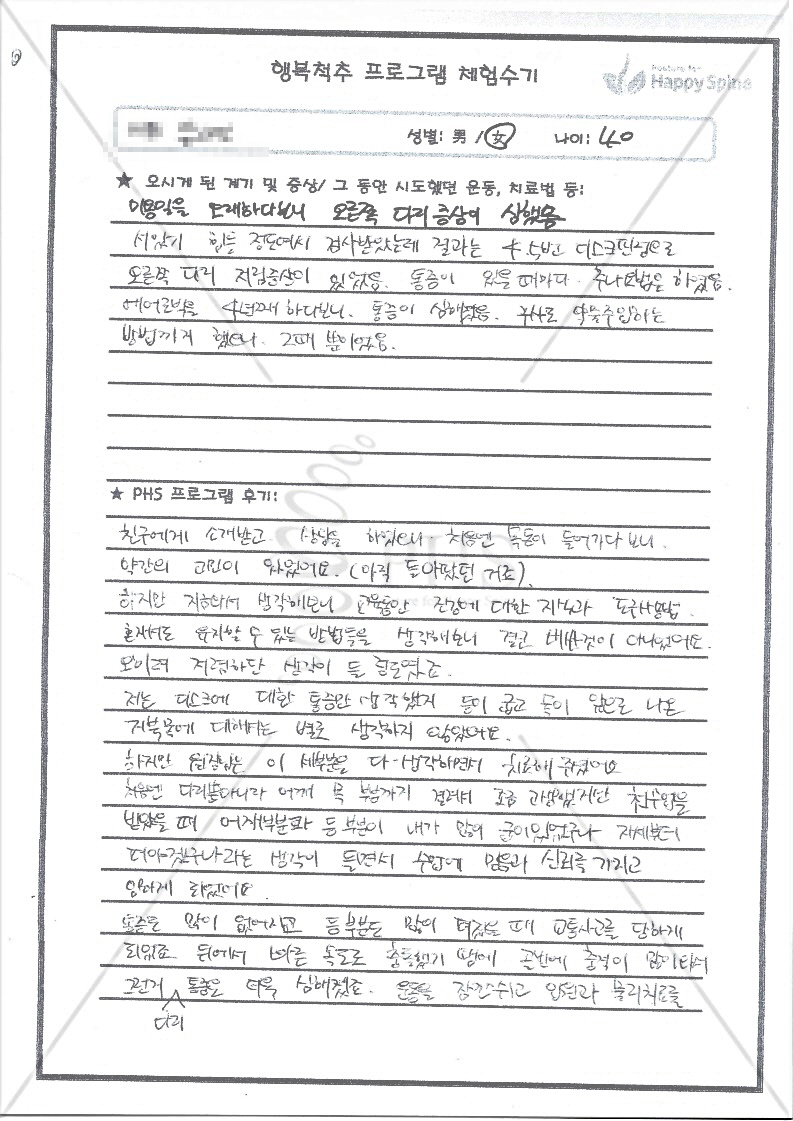 행복척추 프로그램 체험수기
Posture for
Happy Spine
성별: 男 / 女 나이: 40
★ 오시게 된 계기 및 증상/ 그 동안 시도했던 운동, 치료법 등:
미용일을 오래하다보니 오른쪽 다리 증상이 심했음
서있기 힘들 정도여서 검사받았는데 결과는 4,5번 디스크판정으로
오른쪽 다리 저림증상이 있었음. 통증이 있을때마다 추나요법을 하였음.
에어로빅을 4년째 하다보니. 통증이 심해졌음. 주사로 약물주입하는
방법까지 했으나. 그때 뿐이었음.
★ PHS 프로그램 후기:
친구에게 소개받고 상담을 하였으나. 처음엔 목돈이 들어가다 보니.
약간의 고민이 있었어요. (아직 돌아팠던 거죠).
하지만 지나와서 생각해보니 교육동안 건강에 대한 지식과 도구사용법.
혼자서도 유지할 수 있는 방법등을 생각해보니 결코 비싼것이 아니었어요.
오히려 저렴하단 생각이 들 정도였죠.
저는 디스크에 대한 통증만 생각했지 등이 굽고 목이 앞으로 나온
거북목에 대해서는 별로 생각하지 않았어요.
하지만 원장님는 이 세부분을 다 생각하면서 치료해 주셨어요
처음엔 다리뿐아니라 어깨 목 부분까지 결려서 조금 고생했지만 첫수업을
받았을 때 어깨부분과 등 부분이 내가 많이 굳어있었구나 자세부터
되어졌구나라는 생각이 들면서 수업에 믿음과 신뢰를 가지고
임하게 되었어요.
통증도 많이 없어지고 등부분도 많이 펴졌을 때 교통사고를 당하게
되었죠 뒤에서 빠른 속도로 충돌했기 땜에 골반에 충격이 많이 와서
그런지 다리 통증은 더욱 심해졌죠. 운동을 잠깐쉬고 입원과 물리치료를